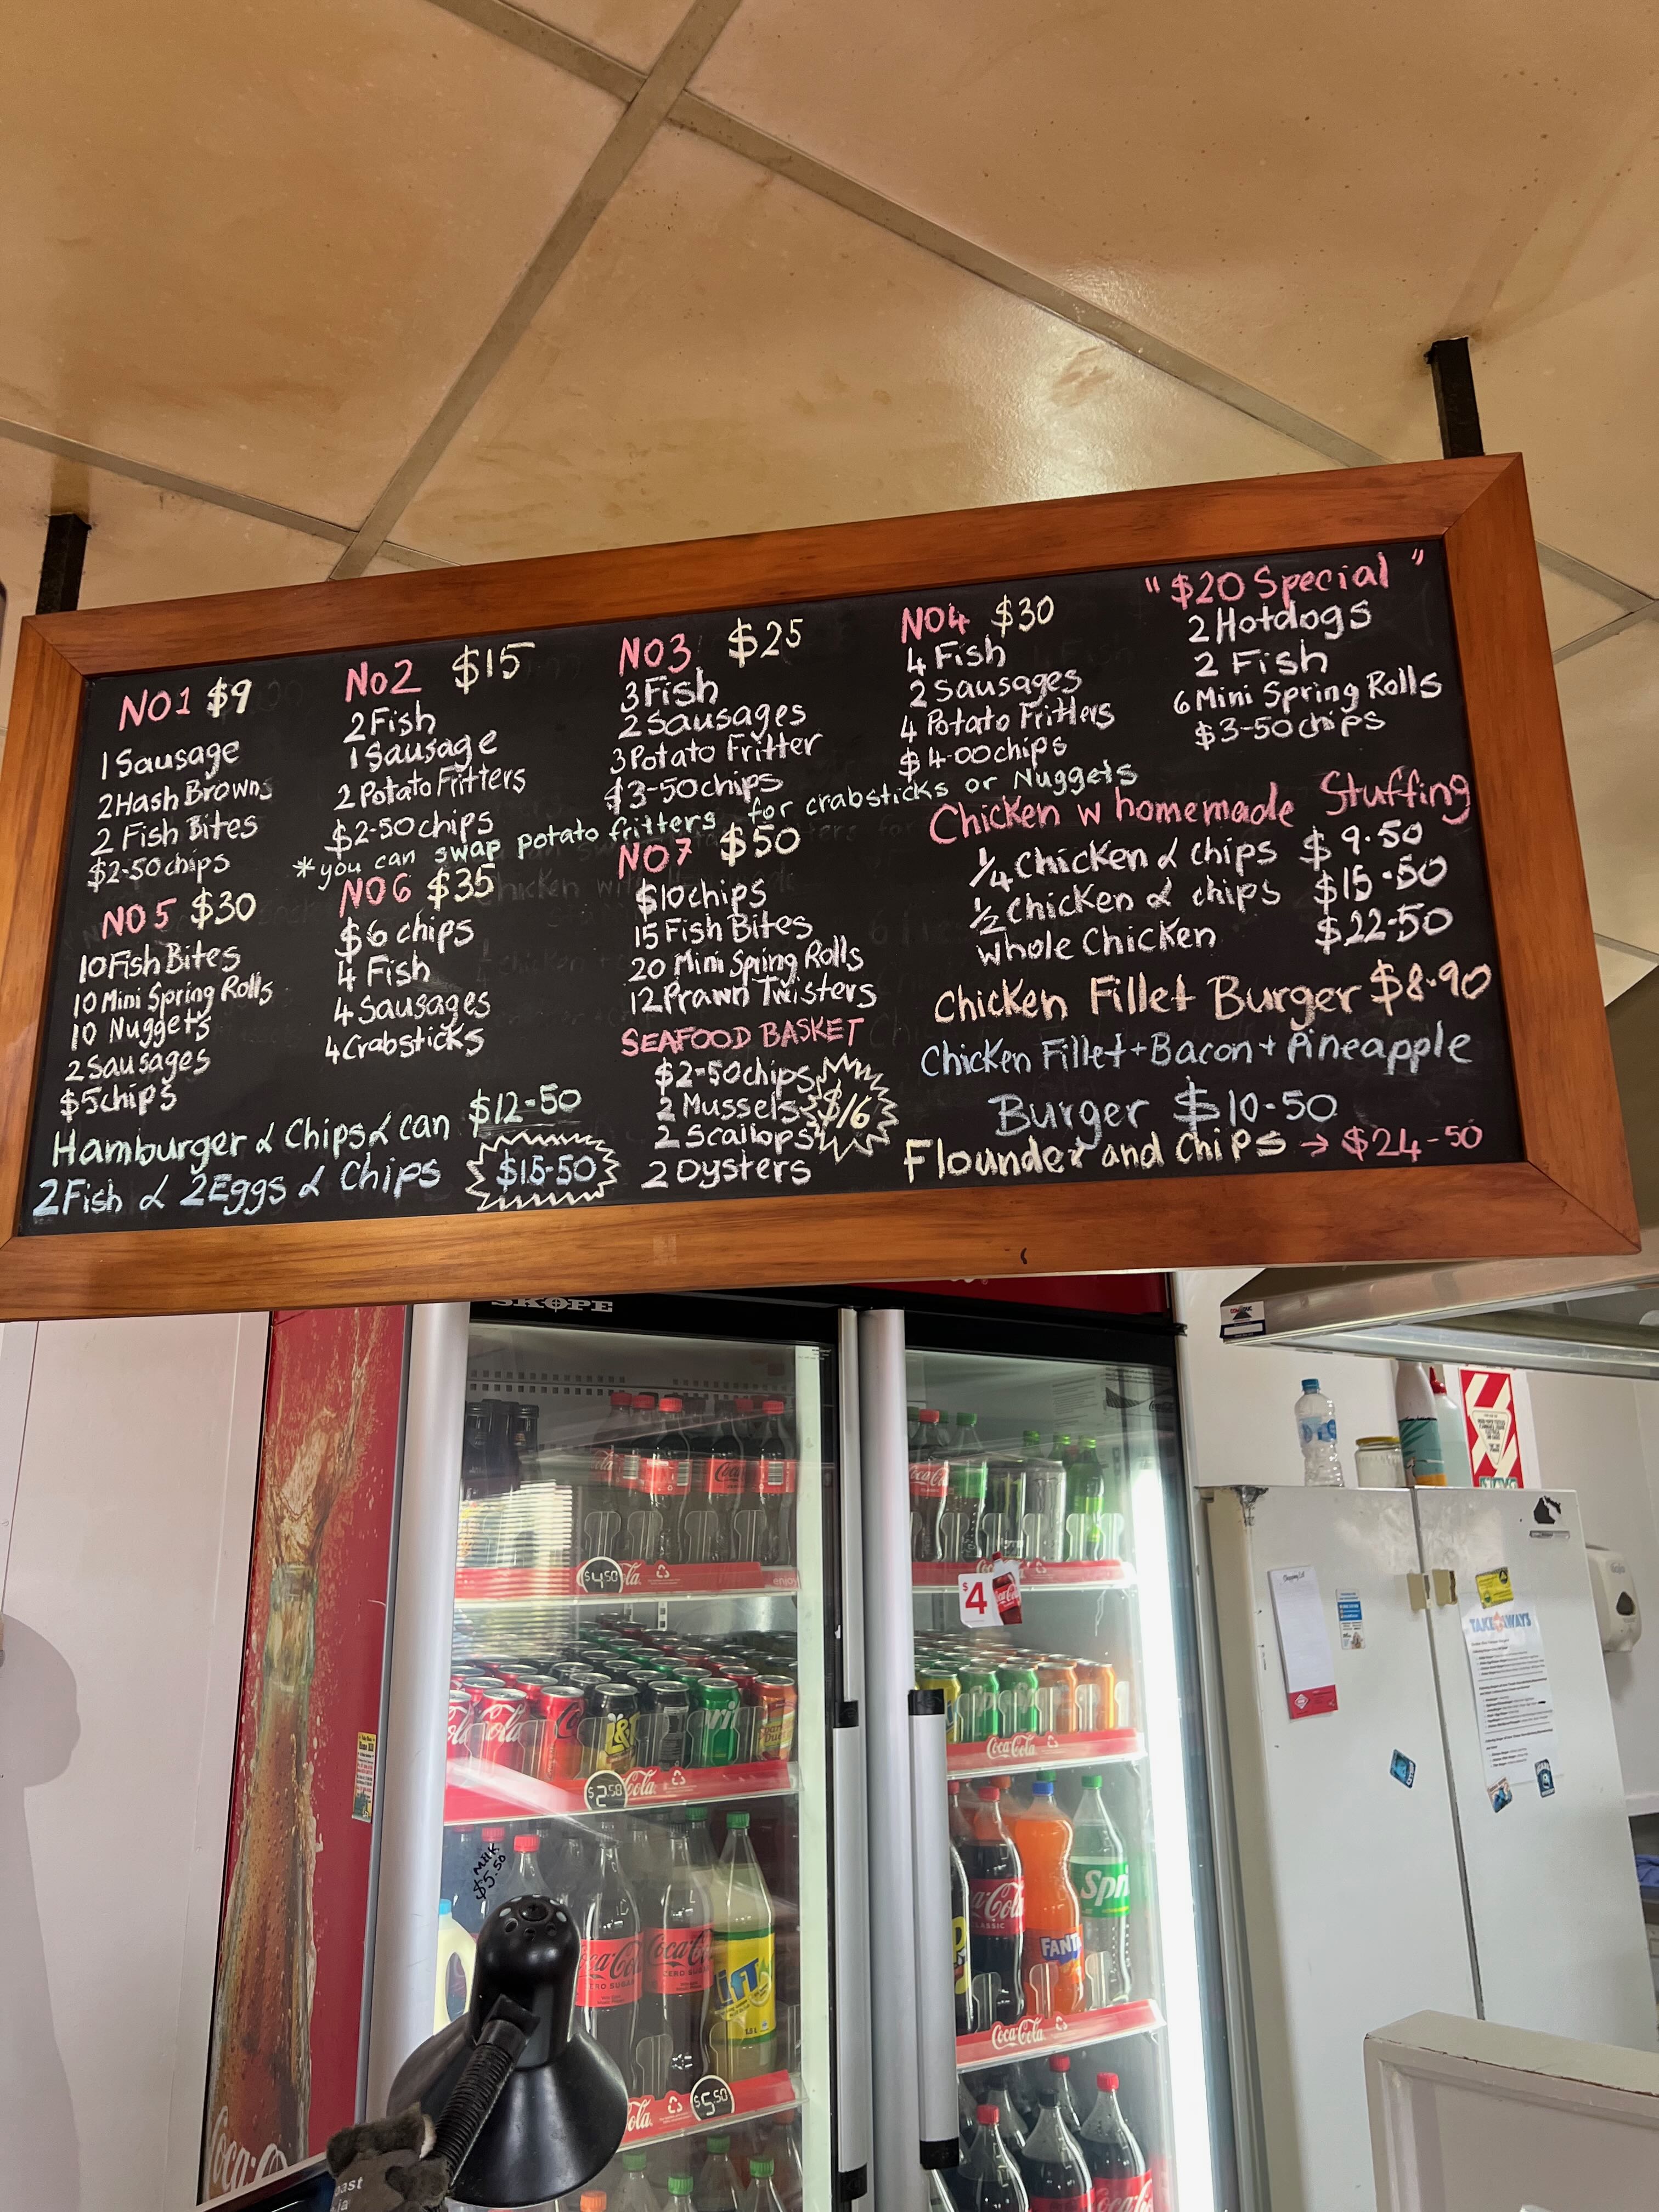 NO1 $9
1 Sausage
2 Hash Browns
2 Fish Bites
$2-50 chips
No2 $15
2 Fish
1 Sausage
2 Potato Fritters
$2-50 chips
NO3 $25
3 Fish
2 Sausages
3 Potato Fritter
$3-50 chips
NO4 $30
4 Fish
2 Sausages
4 Potato Fritters
$4-00 chips
"$20 Special"
2 Hotdogs
2 Fish
6 Mini Spring Rolls
$3-50 chips
*you can swap potato fritters for crabsticks or Nuggets
NO5 $30
10 Fish Bites
10 Mini Spring Rolls
10 Nuggets
2 Sausages
$5 chips
NO6 $35
$6 chips
4 Fish
4 Sausages
4 Crabsticks
NO7 $50
$10 chips
15 Fish Bites
20 Mini Spring Rolls
12 Prawn Twisters
SEAFOOD BASKET
$2-50 chips
2 Mussels $16
2 Scallops
2 Oysters
Chicken w homemade Stuffing
1/4 Chicken & chips $9.50
1/2 Chicken & chips $15-50
Whole Chicken $22-50
Chicken Fillet Burger $8-90
Chicken Fillet + Bacon + Pineapple
Burger $10-50
Flounder and Chips → $24-50
Hamburger & Chips & can $12-50
2 Fish & 2 Eggs & Chips $15-50
SKOPE
$4.50
enjoy
$4
Coca-Cola
$2.50
Coca-Cola
MILK
$5.50
Coca-Cola
ZERO SUGAR
Coca-Cola
ZERO SUGAR
LiFT
Coca-Cola
CLASSIC
FANTA
Spri
Coca-Cola
$5.50
TAKEAWAYS